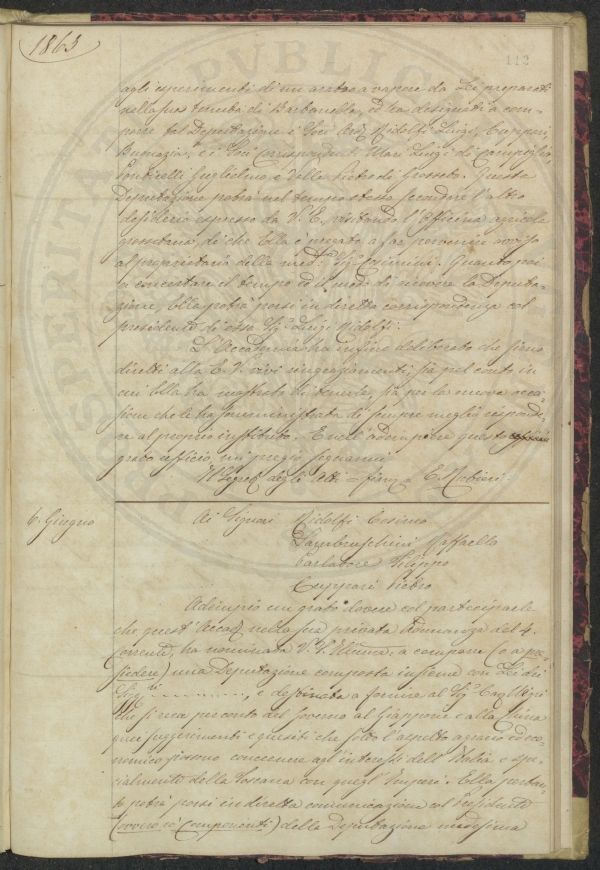 1863
112
agli esperimenti di un aratro a vapore da Lei preparati
nella sua tenuta di Barbanella, ed ha destinati a com-
porre tal Deputazione i Soci Ord. Ridolfi Luigi, Cuppari
e i Soci Corrispondenti Mari Luigi di Campiglia
Ponticelli Guglielmo e Pietro di Grosseto. Questa
Deputazione potrà nel tempo stesso secondare l'altro
desiderio espresso da V. E. visitando l'officina agricola
grossetana, di che Ella è pregata a far pervenire avviso
al proprietario della med. Sig. Quanto poi
a concertare il tempo ed il modo di ricevere la Deputa-
zione, Ella potrà porsi in diretta corrispondenza col
presidente di essa Sig. Luigi Ridolfi.
L'Accademia ha infine deliberato che siano
diretti alla E. V. vivi ringraziamenti, sì pel conto in
cui Ella ha mostrato di tenerla, sì per la nuova occa-
sione che le ha somministrata di sempre meglio risponde-
re al proprio instituto. E nell'adempiere questo
grato ufficio, mi pregio segnarmi
Il Segret. degli Atti = firm. = E. Rubieri.
6. Giugno
Ai Signori Ridolfi Cosimo
Lambruschini Raffaello
Parlatore Filippo
Cuppari Pietro
Adempio un grato dovere col parteciparle
che quest'Accad. nella sua privata Adunanza del 4.
corrente, ha nominata V. S. Illma. a comporre (o a pre-
siedere) una Deputazione composta insieme con Lei dei
Sigg.ri ............, e destinata a fornire al Sig. Cav.
che si reca per conto del Governo al Giappone e alla China
quei suggerimenti e quesiti che sotto l'aspetto agrario ed eco-
nomico possono concernere agl'interessi dell'Italia e spe-
cialmente della Toscana con quegl'Imperi. Ella pertan-
to potrà porsi in diretta comunicazione col Presidente
(ovvero coi Componenti) della Deputazione medesima